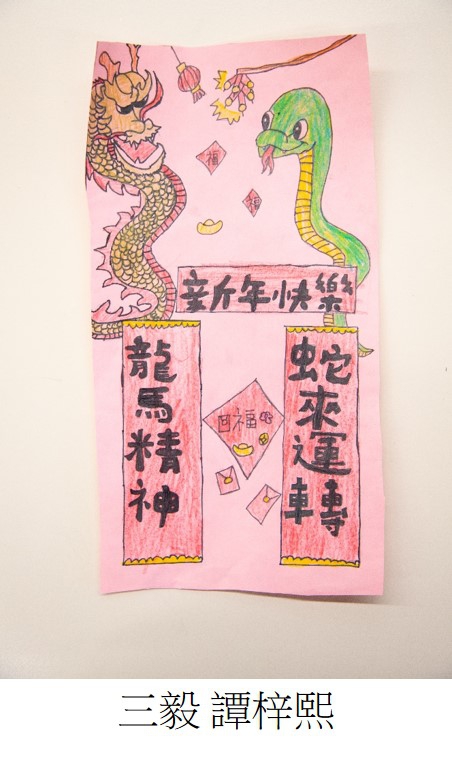 福
福
新年快樂
蛇來運轉
龍馬精神
福
三毅 譚梓熙